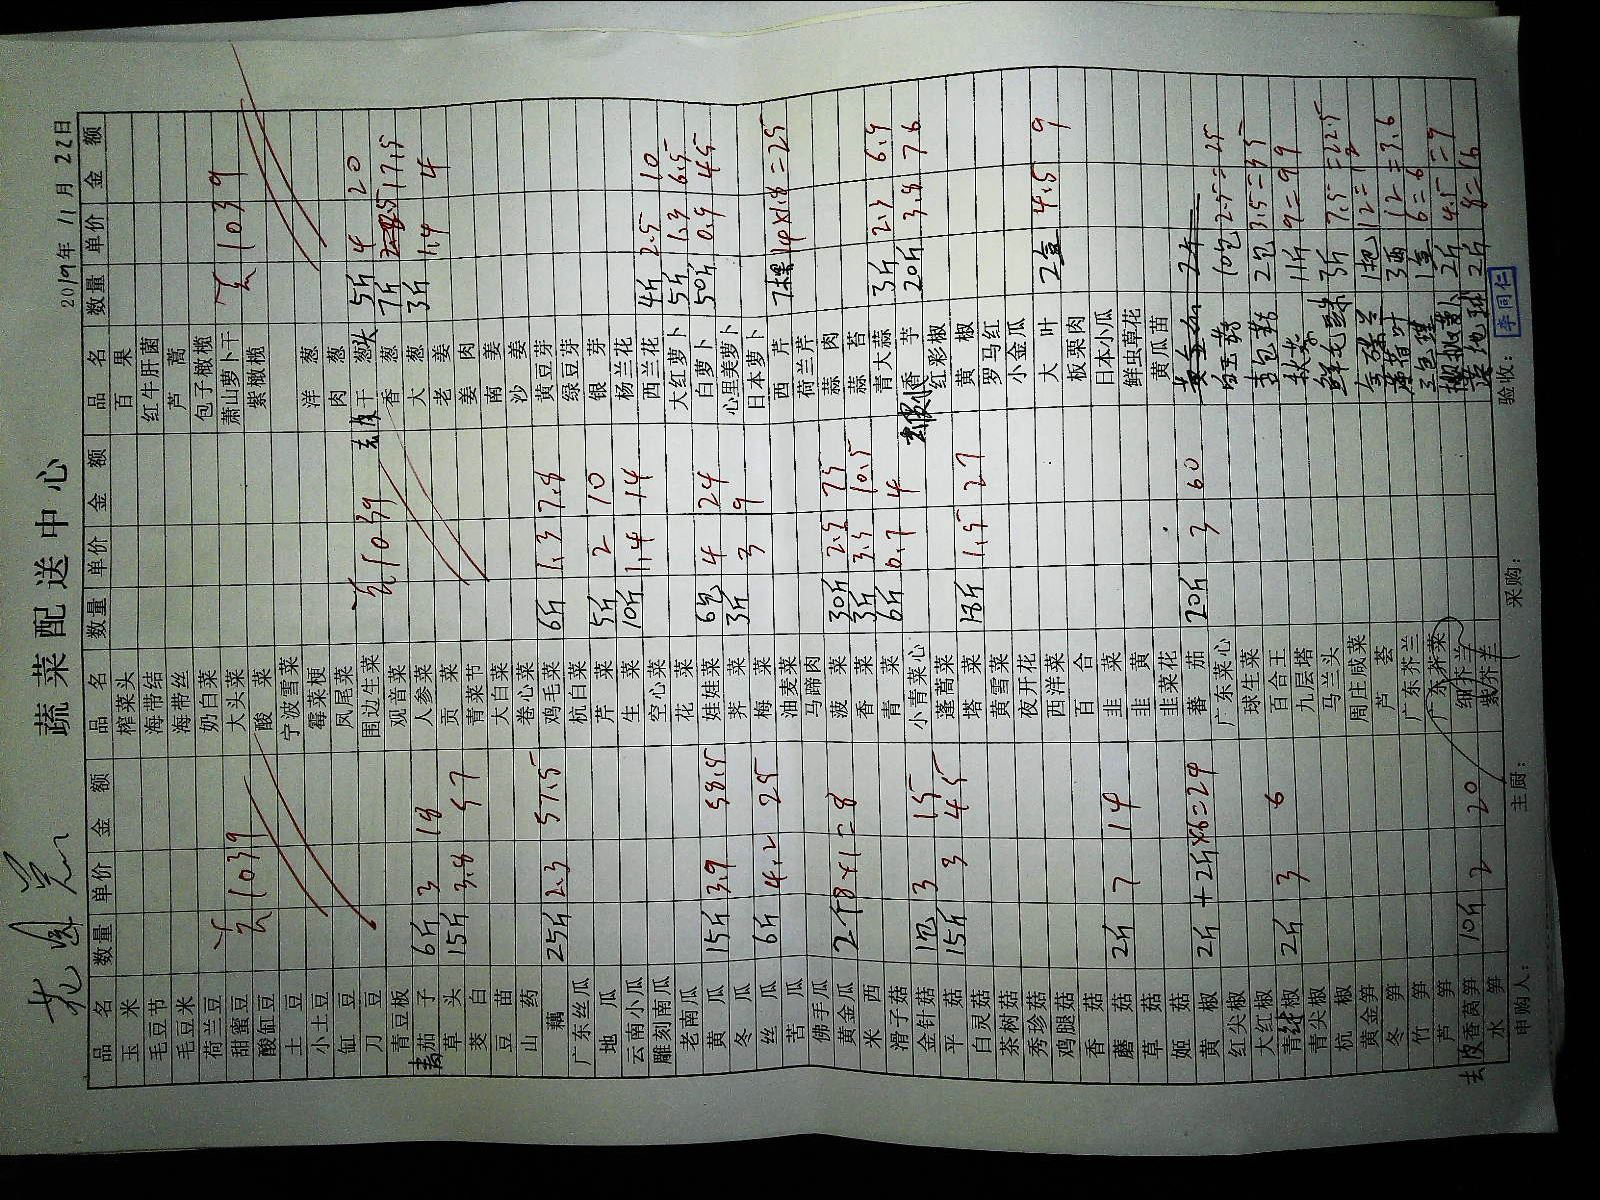 蔬菜配送中心
2019年 11月 22日
品名 数量 单价 金额 品名 数量 单价 金额 品名 数量 单价 金额
玉米
毛豆节
毛豆米
荷兰豆
甜蜜豆
酸缸豆
土豆
小土豆
缸豆
刀豆
青豆板
茄子 6斤 3 18
草头 15斤 3.8 57
茭白
豆苗
山药
藕 25斤 2.3 57.5
广东丝瓜
地瓜
云南小瓜
雕刻南瓜
老南瓜
黄瓜 15斤 3.9 58.5
冬瓜
丝瓜 6斤 4.2 25
苦瓜
佛手瓜
黄金瓜
米西
滑子菇
金针菇 1包 3 15
平菇 15斤 3 45
白灵菇
茶树菇
秀珍菇
鸡腿菇
香菇
蘑菇 2斤 7 14
草菇
姬菇
黄椒 2斤
红尖椒
大红椒
青椒 2斤 3 6
青尖椒
杭椒
黄金笋
冬笋
竹笋
芦笋
去皮香莴笋 10斤 2 20
水笋
榨菜头
海带结
海带丝
奶白菜
大头菜
酸菜
宁波雪菜
霉菜梗
凤尾菜
围边生菜
观音菜
人参菜
贡菜
青菜节
大白菜
卷心菜
鸡毛菜 6斤 1.3 7.8
杭白菜
芹菜 5斤 2 10
生菜 10斤 1.4 14
空心菜
花菜
娃娃菜 6包 4 24
荠菜 3斤 3 9
梅菜
油麦菜
马蹄肉
菠菜 30斤 2.5 75
香菜 3斤 3.5 10.5
青菜 6斤 0.7 4
小青菜心
蓬蒿菜
塔菜 18斤 1.5 27
黄雪菜
夜开花
西洋菜
百合
韭菜
韭黄
韭菜花
蕃茄 20斤 3 60
广东菜心
球生菜
百合王
九层塔
马兰头
周庄咸菜
芦荟
广东芥兰
广东芥菜
细芥羊
紫芥羊
百果
红牛肝菌
芦蒿
包子橄榄
萧山萝卜干
紫橄榄
洋葱
肉葱
干葱头 5斤 4 20
香葱 7斤 2.5 17.5
大葱 3斤 1.4 4
老姜
姜肉
南姜
沙姜
黄豆芽
绿豆芽
银芽
杨兰花
西兰花 4斤 2.5 10
大红萝卜 5斤 1.3 6.5
白萝卜 50斤 0.9 45
心里美萝卜
日本萝卜
西芹 7棵
荷兰芹
蒜肉
蒜苔
青大蒜 3斤 2.3 6.9
香芋 20斤 3.8 76
红彩椒
黄椒
罗马红
小金瓜
大叶 2盒 4.5 9
板栗肉
日本小瓜
鲜虫草花
黄瓜苗
10包 2.5=25
2包 3.5=35
秋葵 11斤 9=99
鲜毛豆 3斤 7.5=22.5
1把 12=12
1盒 6=6
2斤 4.5=9
2斤 8=16
申购人： 主厨： 采购： 验收： 李同仁